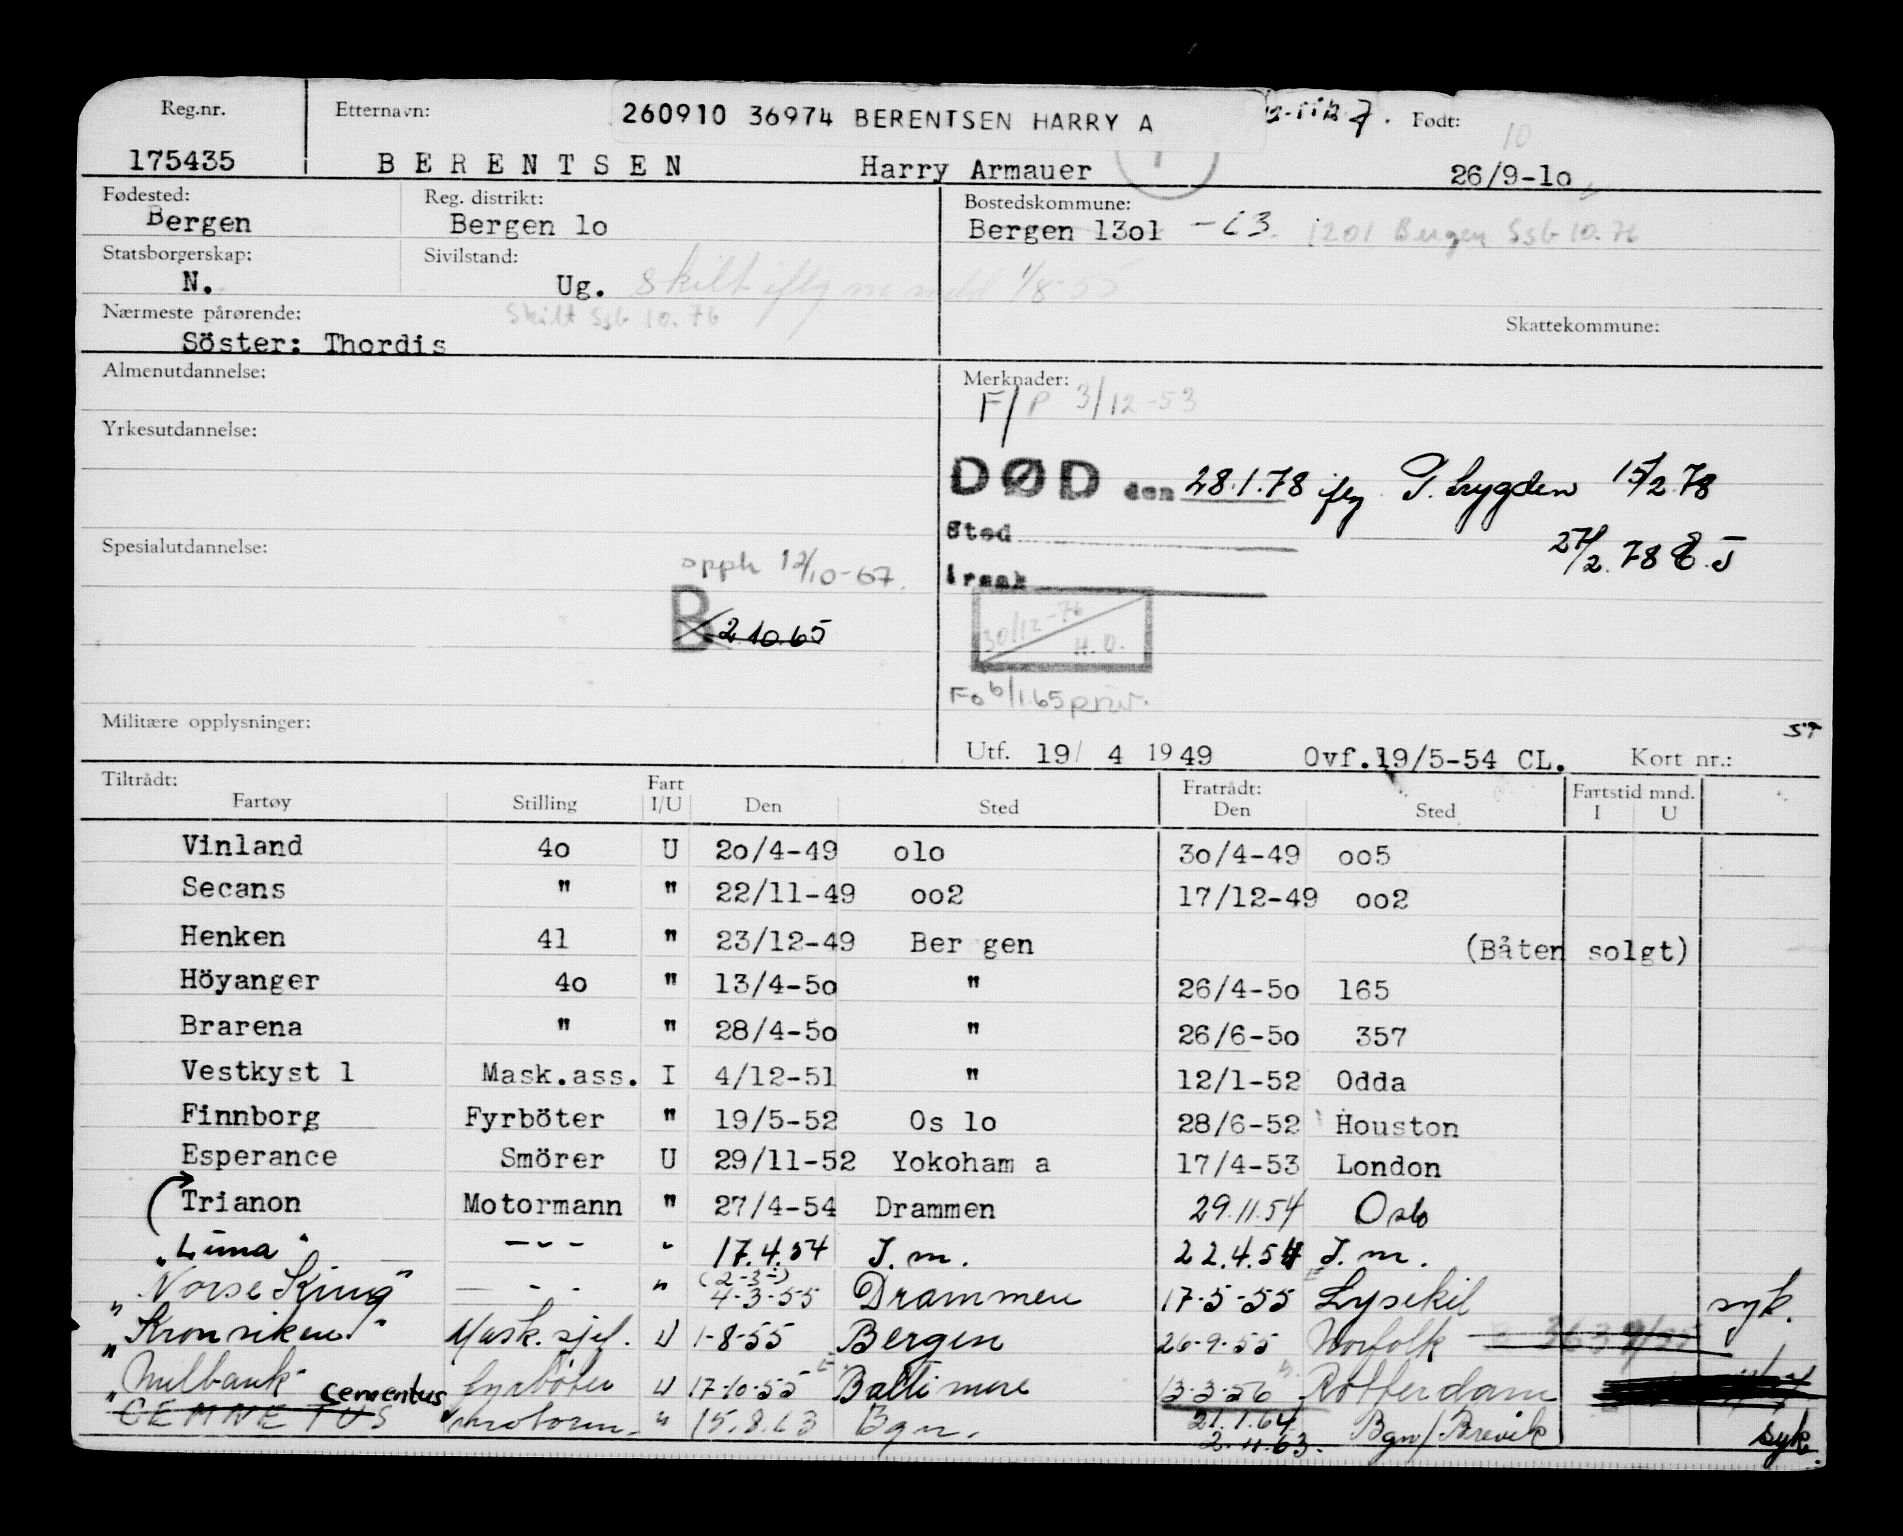 Reg.nr. Etternavn: 260910 36974 BERENTSEN HARRY A Født: 10
175435 BERENTSEN Harry Armauer 26/9-1o
Fødested: Reg. distrikt: Bostedskommune:
Bergen Bergen 1o Bergen 13o1 -63. 1201 Bergen Ssb 10.76
Statsborgerskap: Sivilstand:
N. Ug. Skilt iflg meld 1/8-55
Nærmeste pårørende: Skilt Ssb 10.76 Skattekommune:
Söster: Thordis
Almenutdannelse: Merknader:
F/P 3/12-53
Yrkesutdannelse:
DØD den 28.1.78 iflg T. Lygden 15/2.78
Sted 27/2.78
Spesialutdannelse: opph 12/10-67.
årsak
B 2.10.65 30/12-76 H.O.
Fo 6/1.65 priv.
Militære opplysninger:
Utf. 19/ 4 1949 Ovf.19/5-54 CL. Kort nr.:
Tiltrådt: Fart Fratrådt: Fartstid mnd.
Fartøy Stilling I/U Den Sted Den Sted I U
Vinland 4o U 2o/4-49 o1o 3o/4-49 oo5
Secans " " 22/11-49 oo2 17/12-49 oo2
Henken 41 " 23/12-49 Ber gen (Båten solgt)
Höyanger 4o " 13/4-5o " 26/4-5o 165
Brarena " " 28/4-5o " 26/6-5o 357
Vestkyst 1 Mask.ass. I 4/12-51 " 12/1-52 Odda
Finnborg Fyrböter " 19/5-52 Os lo 28/6-52 Houston
Esperance Smörer U 29/11-52 Yokoham a 17/4-53 London
Trianon Motormann " 27/4-54 Drammen 29.11.54 Oslo
"Luna" - - - " 17.4.54 T.m. 22.4.54 T.m.
"Norse King" - - - " (2-3-) 4-3-55 Drammen 17-5-55 Lysekil syk.
"Kronviken" Mask.sjef. U 1-8-55 Bergen 26-9-55 Norfolk
"Milbank" fyrböter U 17-10-55 Baltimore 13-3-56 Rotterdam
CEMNETUS cementus motorm. " 15.8.63 Bgn. 21.1.64 Bgn/Brevik
2.11.63. syk.